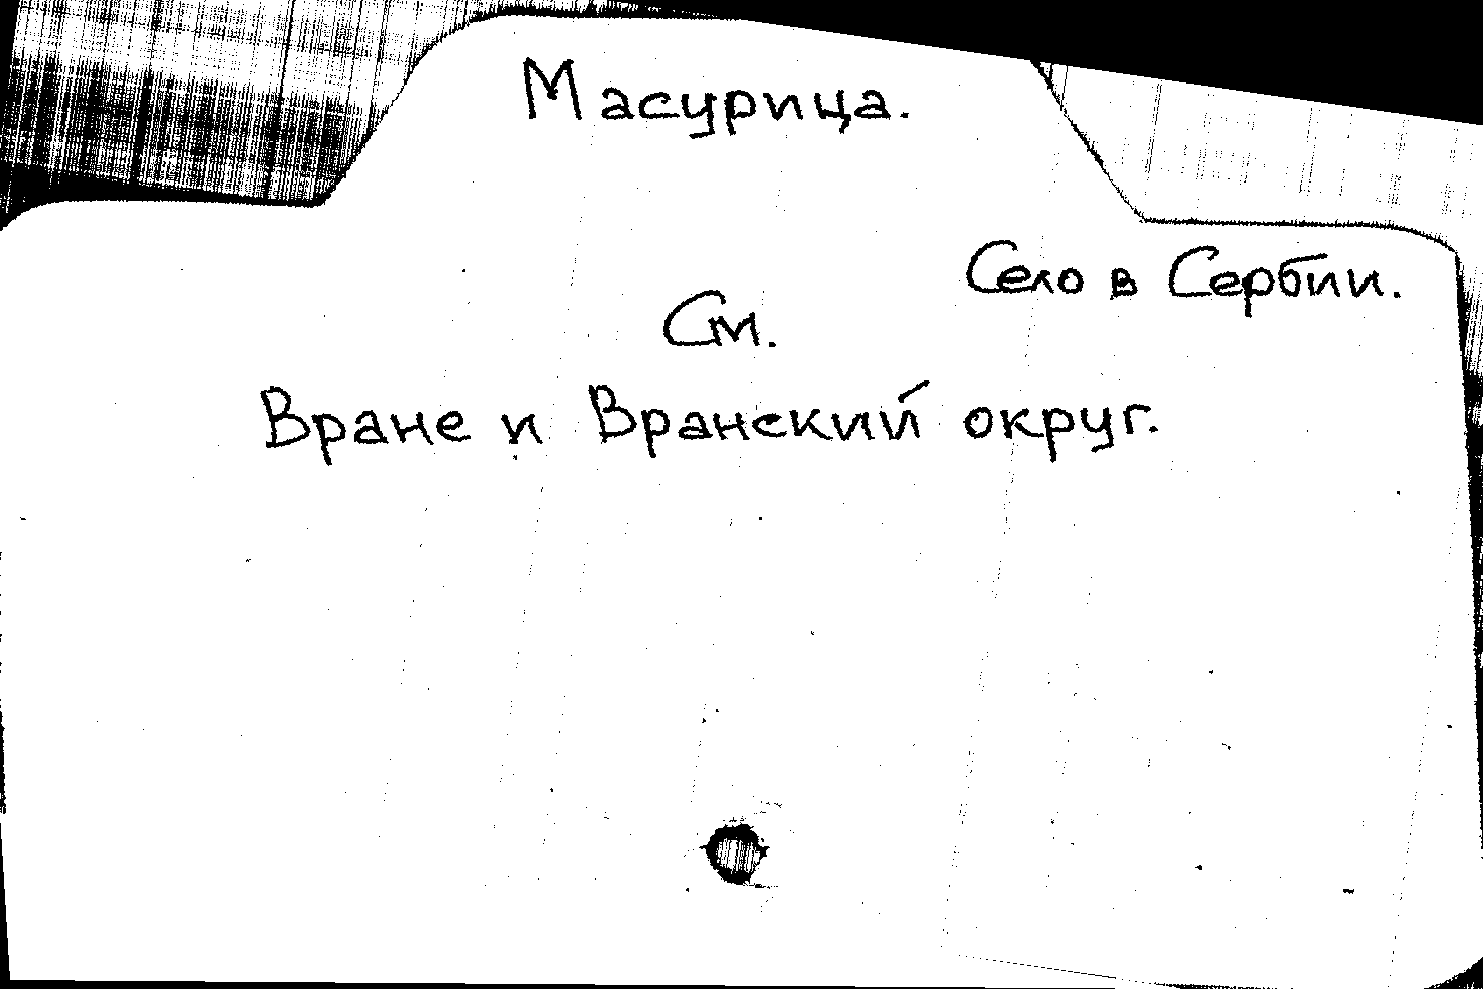 Масурица.
Село в Сербии.
См.
Вране и Вранский округ.